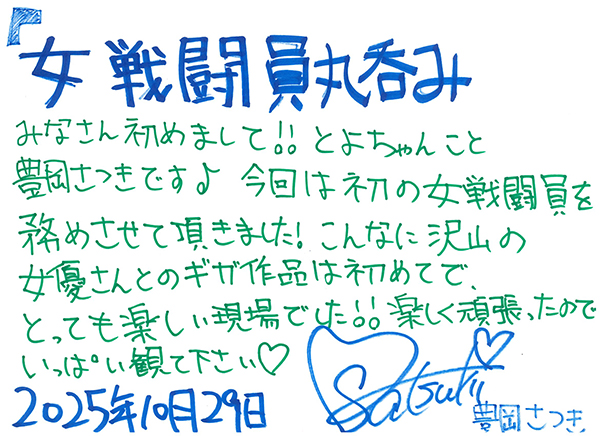 『女戦闘員丸呑み
みなさん初めまして!! とよちゃんこと
豊岡さつきです♪ 今回は初の女戦闘員を
務めさせて頂きました! こんなに沢山の
女優さんとのギガ作品は初めてで、
とっても楽しい現場でした!! 楽しく頑張ったので
いっぱい観て下さい♡
Satsuki♡
2025年10月29日
豊岡さつき.